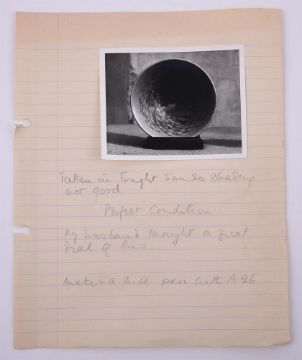 Taken in bright Sun So Shading
not good
Perfect Condition
My husband thought a great
deal of this
Makes a nice pair with A 26